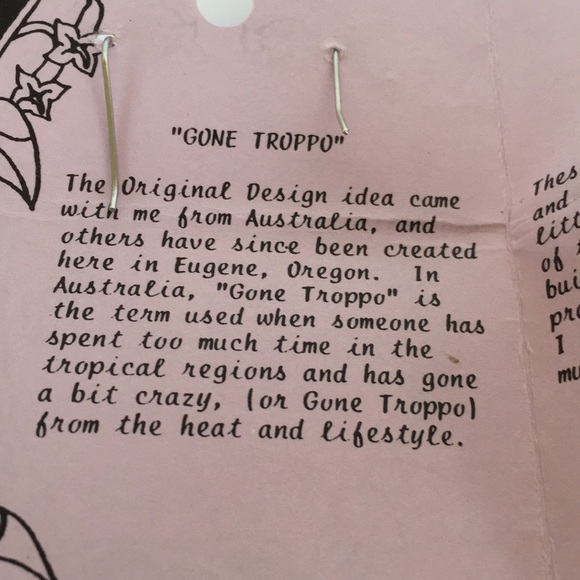 "GONE TROPPO"
The Original Design idea came
with me from Australia, and
others have since been created
here in Eugene, Oregon. In
Australia, "Gone Troppo" is
the term used when someone has
spent too much time in the
tropical regions and has gone
a bit crazy, (or Gone Troppo)
from the heat and lifestyle.
and
of
I